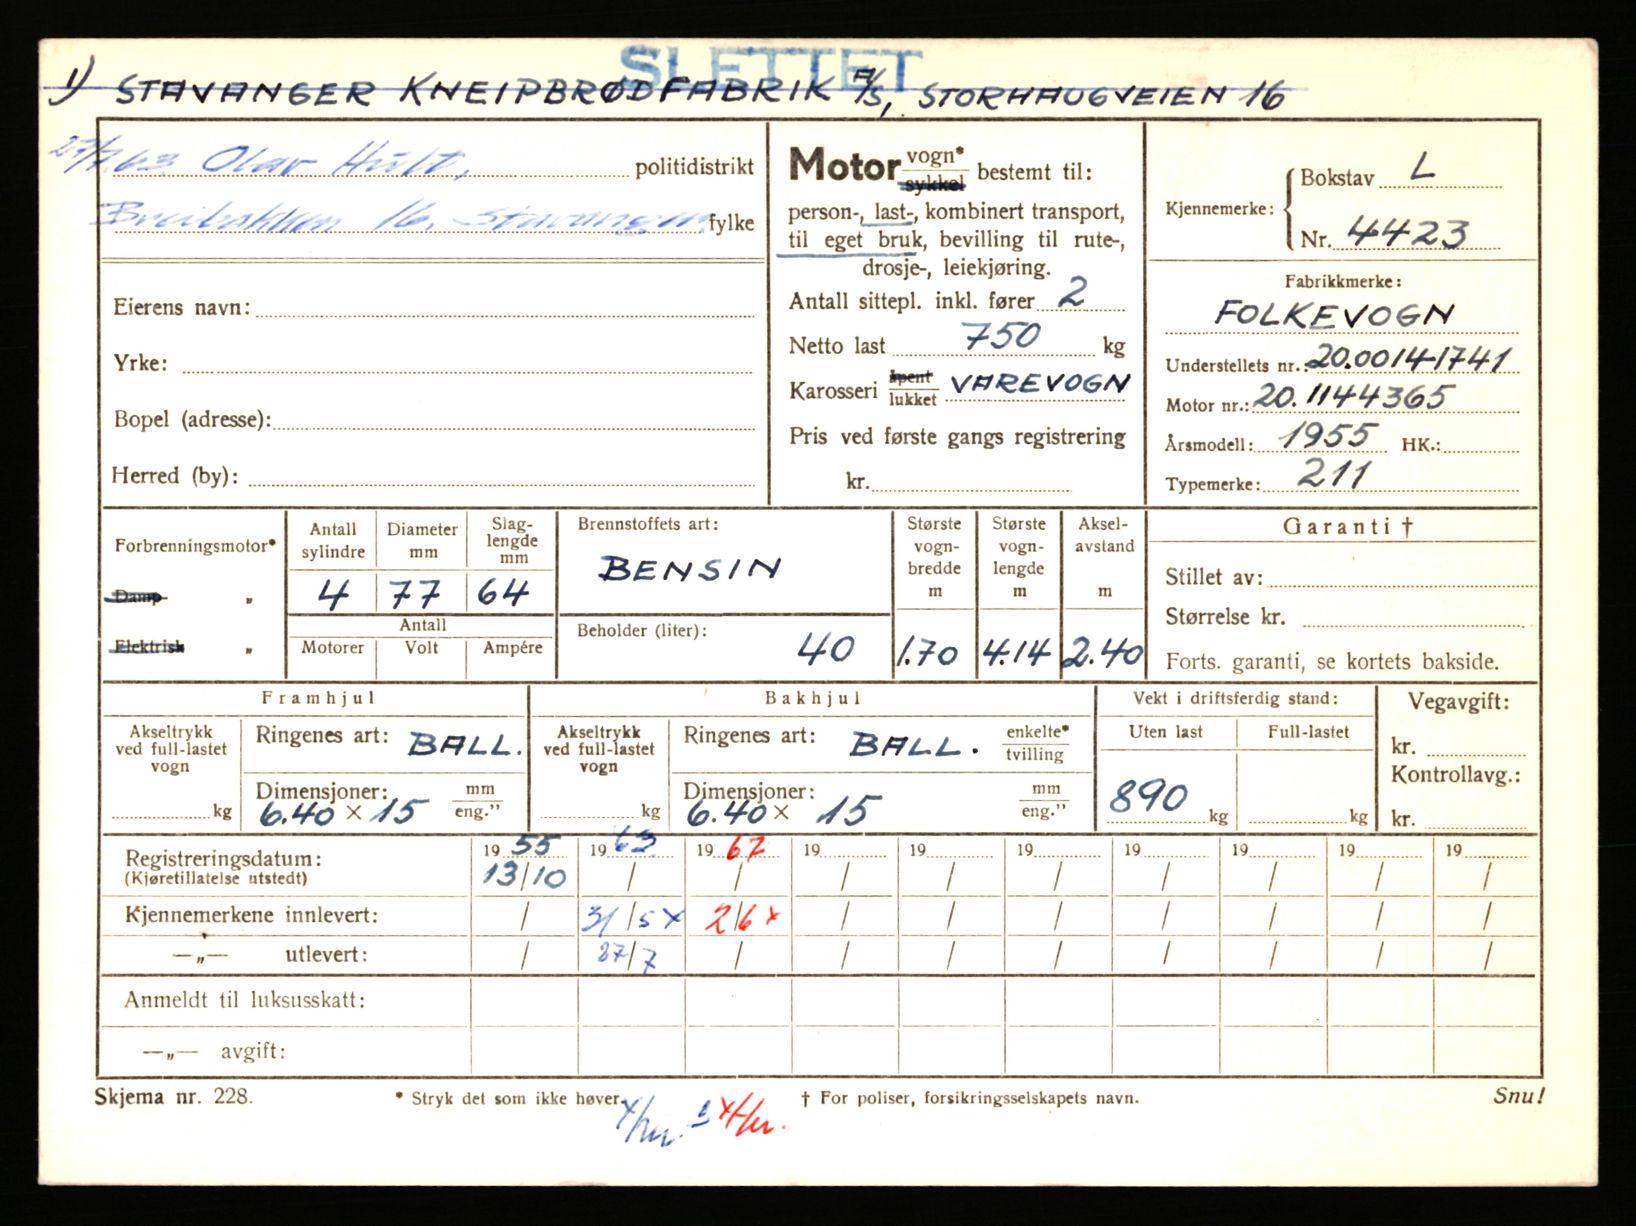 SLETTET
1) STAVANGER KNEIPBRØDFABRIK A/S, STORHAUGVEIEN 16
27/7 63 Olav Hult, politidistrikt
16, Stavanger fylke
Eierens navn:
Yrke:
Bopel (adresse):
Herred (by):
Motor vogn* sykkel bestemt til:
person-, last-, kombinert transport,
til eget bruk, bevilling til rute-,
drosje-, leiekjøring.
Antall sittepl. inkl. fører 2
Netto last 750 kg
Karosseri åpent lukket VAREVOGN
Pris ved første gangs registrering
kr.
Kjennemerke: Bokstav L
Nr. 4423
Fabrikkmerke:
FOLKEVOGN
Understellets nr.: 20.00141741
Motor nr.: 20.1144365
Årsmodell: 1955 HK.:
Typemerke: 211
Forbrenningsmotor*
Damp "
Elektrisk "
Antall sylindre Diameter mm Slag-lengde mm
4 77 64
Antall
Motorer Volt Ampére
Brennstoffets art:
BENSIN
Beholder (liter): 40
Største vogn-bredde m 1.70
Største vogn-lengde m 4.14
Aksel-avstand m 2.40
Garanti †
Stillet av:
Størrelse kr.
Forts. garanti, se kortets bakside.
Framhjul
Akseltrykk ved full-lastet vogn kg
Ringenes art: BALL.
Dimensjoner: mm eng."
6.40 × 15
Bakhjul
Akseltrykk ved full-lastet vogn kg
Ringenes art: BALL. enkelte* tvilling
Dimensjoner: mm eng."
6.40 × 15
Vekt i driftsferdig stand:
Uten last Full-lastet
890 kg kg
Vegavgift:
kr.
Kontrollavg.:
kr.
Registreringsdatum: 19 55 19 63 19 67 19 19 19 19 19 19 19
(Kjøretillatelse utstedt) 13/10 / / / / / / / / /
Kjennemerkene innlevert: / 31/5 x 2/6 x / / / / / / /
—"— utlevert: / 27/7 / / / / / / / /
Anmeldt til luksusskatt:
—"— avgift:
Skjema nr. 228. * Stryk det som ikke høver. † For poliser, forsikringsselskapets navn. Snu!